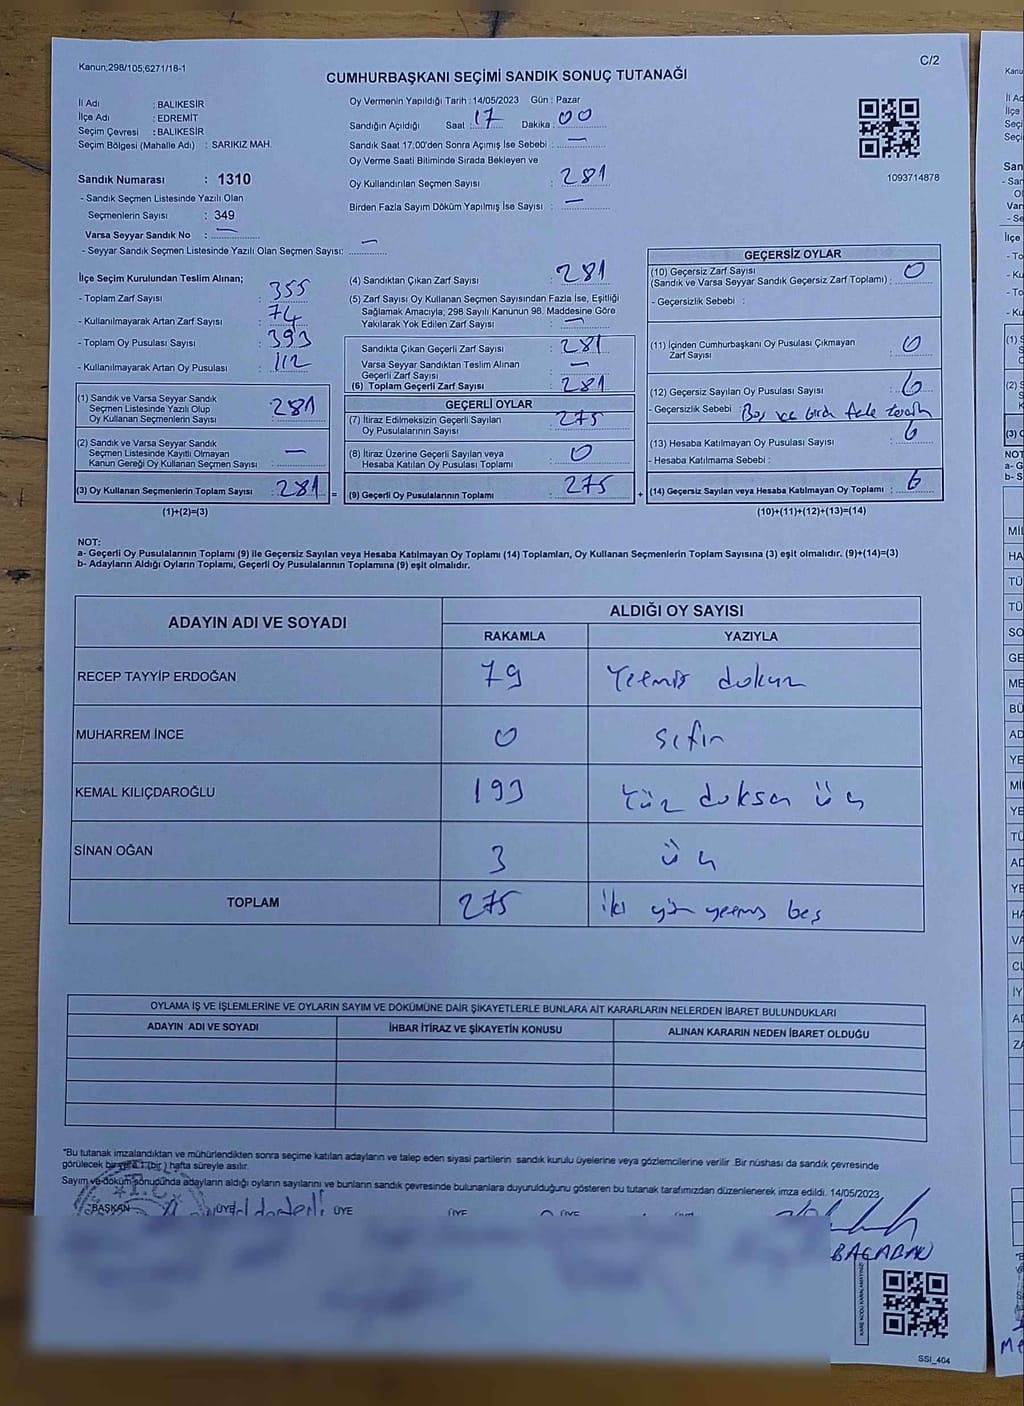 Kanun;298/105;6271/18-1
C/2
CUMHURBAŞKANI SEÇİMİ SANDIK SONUÇ TUTANAĞI
İl Adı : BALIKESİR
İlçe Adı : EDREMİT
Seçim Çevresi : BALIKESİR
Seçim Bölgesi (Mahalle Adı) : SARIKIZ MAH.
Sandık Numarası : 1310
- Sandık Seçmen Listesinde Yazılı Olan
Seçmenlerin Sayısı : 349
Varsa Seyyar Sandık No : —
- Seyyar Sandık Seçmen Listesinde Yazılı Olan Seçmen Sayısı: —
Oy Vermenin Yapıldığı Tarih :14/05/2023 Gün : Pazar
Sandığın Açıldığı Saat : 17 Dakika : 00
Sandık Saat 17.00'den Sonra Açımış İse Sebebi : —
Oy Verme Saati Bitiminde Sırada Bekleyen ve
Oy Kullandırılan Seçmen Sayısı : 281
Birden Fazla Sayım Döküm Yapılmış İse Sayısı : —
1093714878
İlçe Seçim Kurulundan Teslim Alınan;
- Toplam Zarf Sayısı : 355
- Kullanılmayarak Artan Zarf Sayısı : 74
- Toplam Oy Pusulası Sayısı : 393
- Kullanılmayarak Artan Oy Pusulası : 112
(1) Sandık ve Varsa Seyyar Sandık
Seçmen Listesinde Yazılı Olup
Oy Kullanan Seçmenlerin Sayısı : 281
(2) Sandık ve Varsa Seyyar Sandık
Seçmen Listesinde Kayıtlı Olmayan
Kanun Gereği Oy Kullanan Seçmen Sayısı : —
(3) Oy Kullanan Seçmenlerin Toplam Sayısı : 281 =
(1)+(2)=(3)
(4) Sandıktan Çıkan Zarf Sayısı : 281
(5) Zarf Sayısı Oy Kullanan Seçmen Sayısından Fazla İse, Eşitliği
Sağlamak Amacıyla; 298 Sayılı Kanunun 98. Maddesine Göre
Yakılarak Yok Edilen Zarf Sayısı : —
Sandıkta Çıkan Geçerli Zarf Sayısı : 281
Varsa Seyyar Sandıktan Teslim Alınan
Geçerli Zarf Sayısı : —
(6) Toplam Geçerli Zarf Sayısı : 281
GEÇERLİ OYLAR
(7) İtiraz Edilmeksizin Geçerli Sayılan
Oy Pusulalarının Sayısı : 275
(8) İtiraz Üzerine Geçerli Sayılan veya
Hesaba Katılan Oy Pusulası Toplamı : 0
(9) Geçerli Oy Pusulalarının Toplamı : 275 +
GEÇERSİZ OYLAR
(10) Geçersiz Zarf Sayısı
(Sandık ve Varsa Seyyar Sandık Geçersiz Zarf Toplamı) : 0
- Geçersizlik Sebebi :
(11) İçinden Cumhurbaşkanı Oy Pusulası Çıkmayan
Zarf Sayısı : 0
(12) Geçersiz Sayılan Oy Pusulası Sayısı : 6
- Geçersizlik Sebebi : Boş ve birden fazla
(13) Hesaba Katılmayan Oy Pusulası Sayısı : 6
- Hesaba Katılmama Sebebi :
(14) Geçersiz Sayılan veya Hesaba Katılmayan Oy Toplamı : 6
(10)+(11)+(12)+(13)=(14)
NOT:
a- Geçerli Oy Pusulalarının Toplamı (9) ile Geçersiz Sayılan veya Hesaba Katılmayan Oy Toplamı (14) Toplamları, Oy Kullanan Seçmenlerin Toplam Sayısına (3) eşit olmalıdır. (9)+(14)=(3)
b- Adayların Aldığı Oyların Toplamı, Geçerli Oy Pusulalarının Toplamına (9) eşit olmalıdır.
ADAYIN ADI VE SOYADI ALDIĞI OY SAYISI
RAKAMLA YAZIYLA
RECEP TAYYİP ERDOĞAN 79 Yetmiş dokuz
MUHARREM İNCE 0 sıfır
KEMAL KILIÇDAROĞLU 193 Yüz doksan üç
SİNAN OĞAN 3 üç
TOPLAM 275 iki yüz yetmiş beş
OYLAMA İŞ VE İŞLEMLERİNE VE OYLARIN SAYIM VE DÖKÜMÜNE DAİR ŞİKAYETLERLE BUNLARA AİT KARARLARIN NELERDEN İBARET BULUNDUKLARI
ADAYIN ADI VE SOYADI İHBAR İTİRAZ VE ŞİKAYETİN KONUSU ALINAN KARARIN NEDEN İBARET OLDUĞU
"Bu tutanak imzalandıktan ve mühürlendikten sonra seçime katılan adayların ve talep eden siyasi partilerin sandık kurulu üyelerine veya gözlemcilerine verilir .Bir nüshası da sandık çevresinde
görülecek bir yere 1 (bir ) hafta süreyle asılır.
Sayım ve döküm sonucunda adayların aldığı oyların sayılarını ve bunların sandık çevresinde bulunanlara duyurulduğunu gösteren bu tutanak tarafımızdan düzenlenerek imza edildi. 14/05/2023
T.C.
BAŞKAN ÜYE ÜYE ÜYE ÜYE
KARE KODU KARALAMAYINIZ!
SSI_404